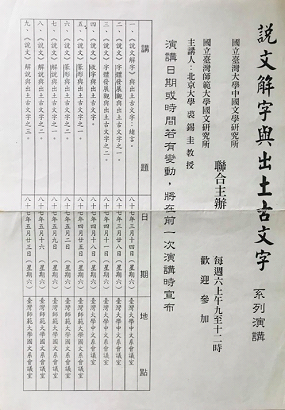 說文解字與出土古文字 系列演講
國立臺灣大學中國文學研究所
國立臺灣師範大學國文研究所
聯合主辦
主講人：北京大學 裘錫圭教授
每週六上午九至十二時
歡迎參加
演講日期或時間若有變動，將在前一次演講時宣布
講題 日期 地點
一、《說文解字》與出土古文字：緒言。 八十七年三月十四日（星期六） 臺灣大學中文系會議室
二、《說文》 臺灣大學中文系會議室
三、《說文》字體發展觀與出土古文字之二。 八十七年四月十一日（星期六） 臺灣大學中文系會議室
四、《說文》 與出土古文字之一。 八十七年四月十八日（星期六） 臺灣大學中文系會議室
五、《說文》 與出土古文字之二。 臺灣師範大學國文系會議室
六、《說文》 與出土古文字之三。 八十七年五月二日（星期六） 臺灣師範大學國文系會議室
七、《說文》解說與出土古文字之一。 八十七年五月九日（星期六） 臺灣師範大學國文系會議室
八、《說文》解說與出土古文字之二。 八十七年五月十六（星期六） 臺灣師範大學國文系會議室
九、《說文》解說與出土古文字之三。 八十七年五月廿三日（星期六） 臺灣師範大學國文系會議室